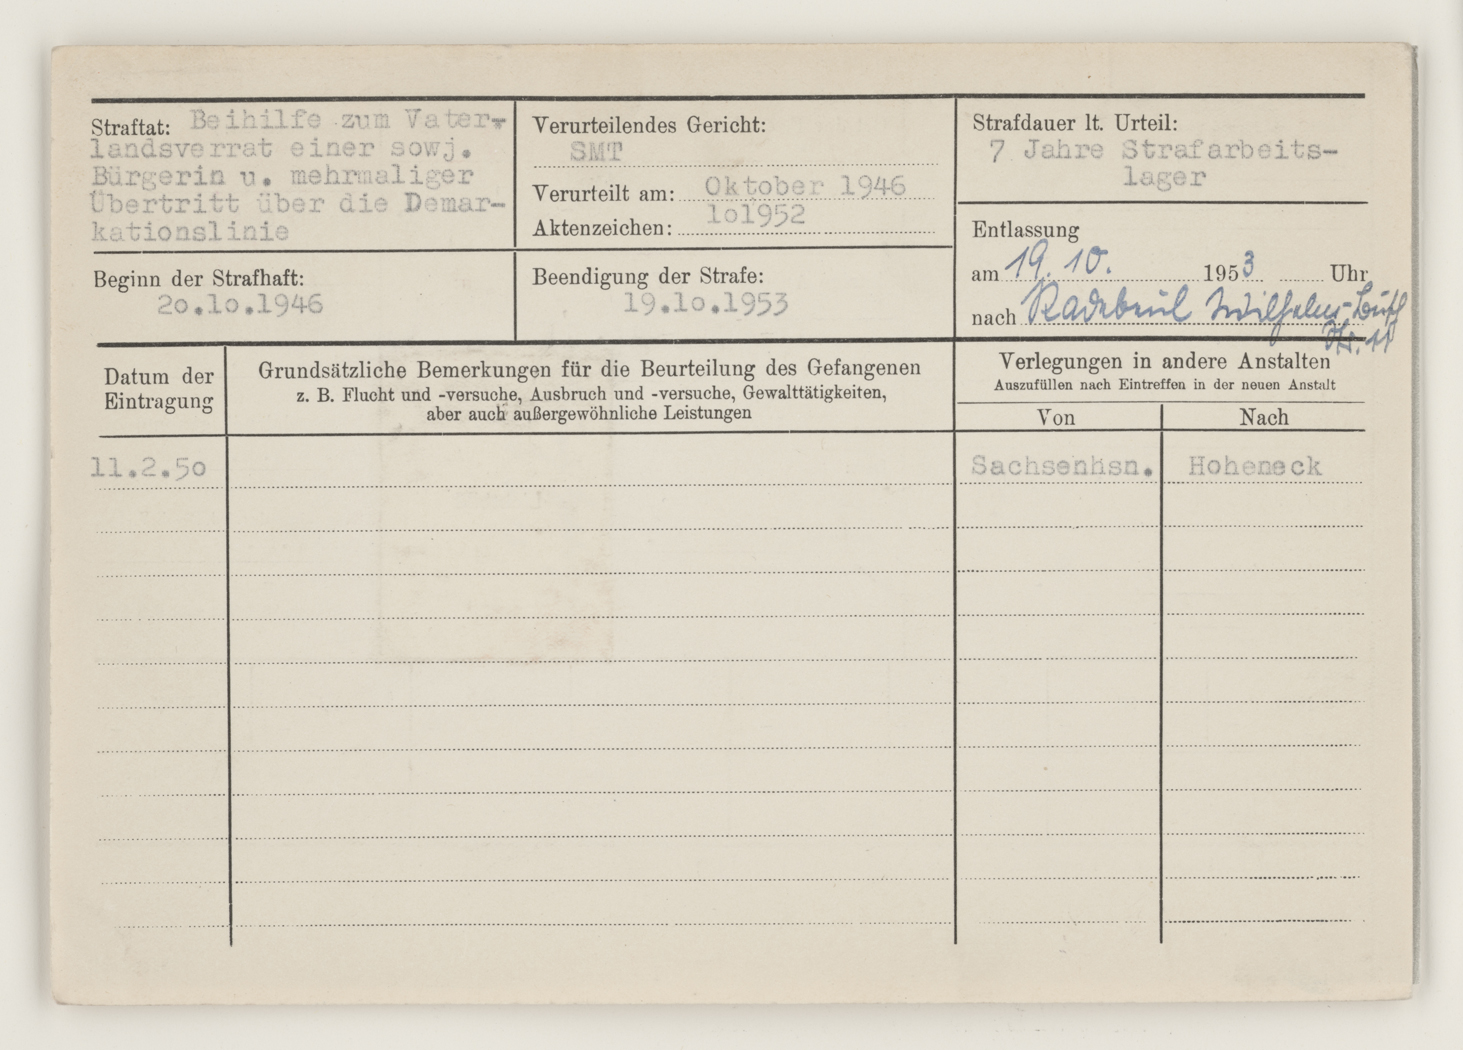 Straftat: Beihilfe zum Vater-
landsverrat einer sowj.
Bürgerin u. mehrmaliger
Übertritt über die Demar-
kationslinie
Verurteilendes Gericht:
SMT
Verurteilt am: Oktober 1946
Aktenzeichen: 1o1952
Strafdauer lt. Urteil:
7 Jahre Strafarbeits-
lager
Beginn der Strafhaft:
2o.1o.1946
Beendigung der Strafe:
19.1o.1953
Entlassung
am 19. 10. 1953 Uhr
nach Radebeul Wilhelm-
Str. 11
Datum der
Eintragung
Grundsätzliche Bemerkungen für die Beurteilung des Gefangenen
z. B. Flucht und -versuche, Ausbruch und -versuche, Gewalttätigkeiten,
aber auch außergewöhnliche Leistungen
Verlegungen in andere Anstalten
Auszufüllen nach Eintreffen in der neuen Anstalt
Von Nach
11.2.5o Sachsenhsn. Hoheneck